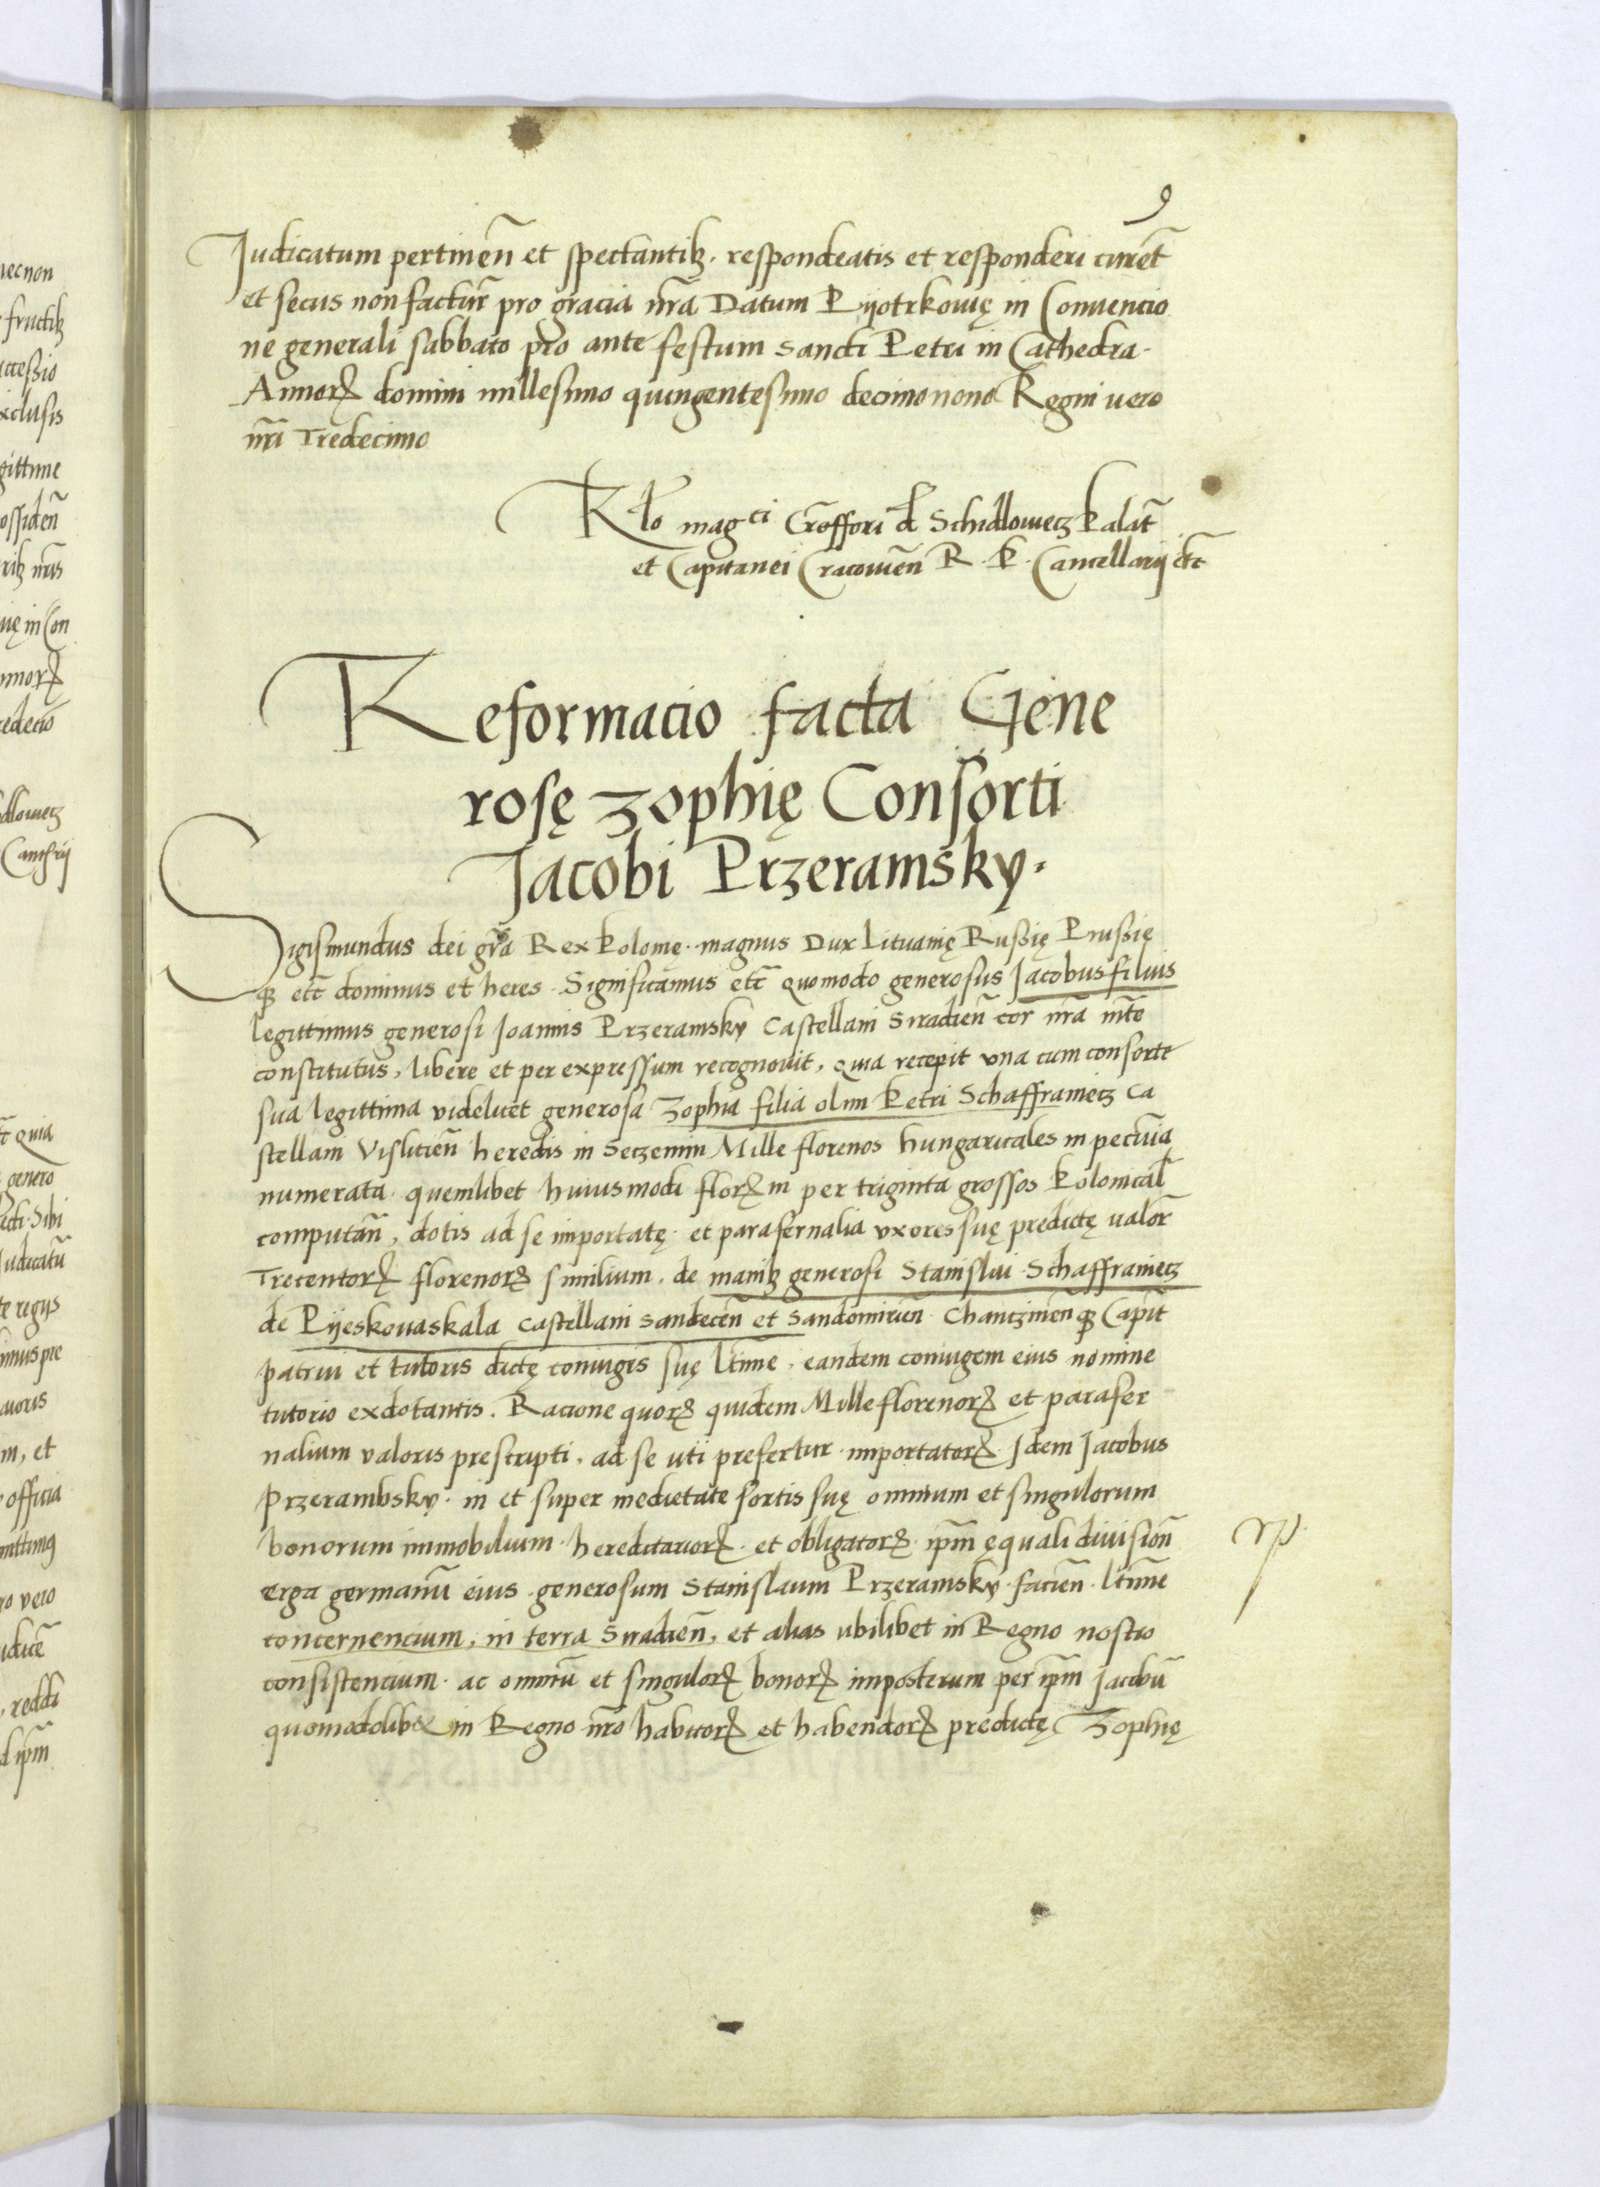 9
Judicatum pertinen̄ et spectantibꝫ. respondeatis et responderi curet̄
et secus non factur̄ pro gracia nr̄a Datum Pyotrkowię in Conuencio
ne generali sabbato pro ante festum Sancti Petri in Cathedra.
Annorꝝ domini millesimo quingentesimo decimonono Regni vero
nr̄i Tredecimo
Rl̄o mag^ci Cr̄offori de Schidlowecz Palat̄
et Capitanei Cracouien̄ R. P. Cancellarij etc̄
Reformacio facta Gene
rosę Zophię Consorti
Jacobi Przeramsky.
Sigismundus dei gr̄a Rex Polonię. magnus Dux Lituanię Russię Prussię
qꝫ etc̄ dominus et heres. Significamus etc̄ quomodo generosus Jacobus filius
legittimus generosi Joannis Przeramsky Castellani Siradien̄ cor nr̄a mt̄e
constitutus, libere et per expressum recognouit, quia recepit una cum consorte
sua legittima videlicet generosa Zophia filia olim Petri Schaffraniecz Ca
stellani Vislicien̄ heredis in Seczemin Mille florenos hungaricales in pecunia
numerata. quemlibet huiusmodi florꝝ in per triginta grossos Polonical̄
computan̄, dotis ad se importatę. et parafernalia uxores suę predictę valor̄
Trecentorꝝ florenorꝝ similium. de manibꝫ generosi Stanislai Schaffraniecz
de Pyeskouaskala Castellani Sandecen̄ et Sandomirien̄. Chanczinen̄ qꝫ Capit̄
patrui et tutoris dictę coniugis suę lt̄ime, eandem coniugem eius nomine
tutorio exdotantis. Racione quorꝝ quidem Mille florenorꝝ et parafer
nalium valoris prescripti, ad se uti prefertur importatorꝝ. Jdem Jacobus
Przerambsky. in et super medietate sortis suę omnium et singulorum
bonorum immobilium hereditariorꝝ. et obligatorꝝ. ip̄m ęquali diuision̄
erga germanū eius generosum Stanislaum Przeramsky. facien̄. lt̄ime
concernencium, in terra Siradien̄, et alias ubilibet in Regno nostro
consistencium. ac omniū et singulorꝝ bonorꝝ imposterum per ip̄m Jacobū
quomodolibet in Regno nr̄o habitorꝝ et habendorꝝ predictę Zophię